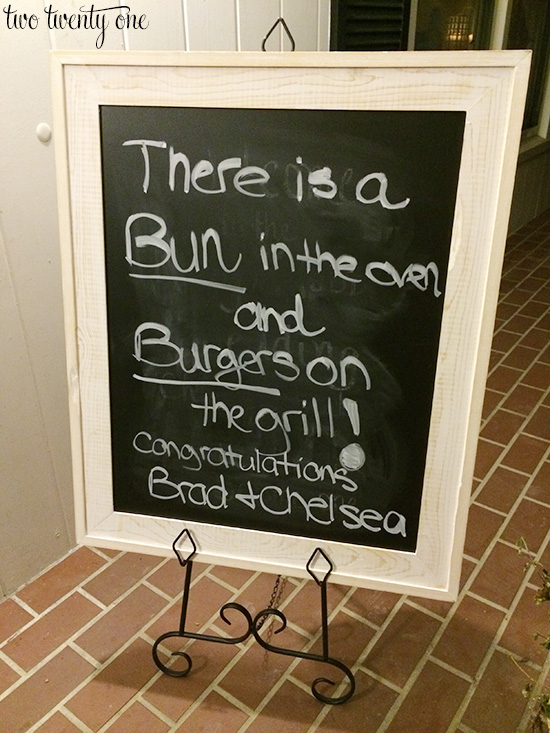 two twenty one
There is a
Bun in the oven
and
Burgers on
the grill!
Congratulations
Brad + Chelsea